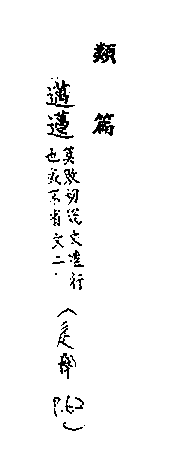 類篇
邁
莫敗切說文遠行
也或不省文二
(辵部 P.62)